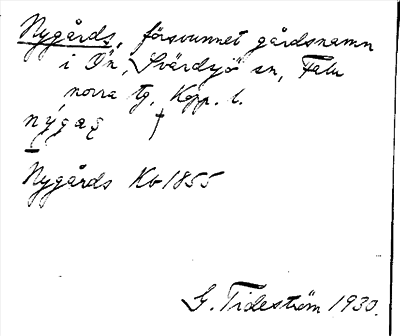 Nygårds, försvunnet gårdsnamn
i Ön, Svärdsjö sn, Falu
norra tg, Kopp. l.
Nygårds Kb 1855
G. Tideström 1930.